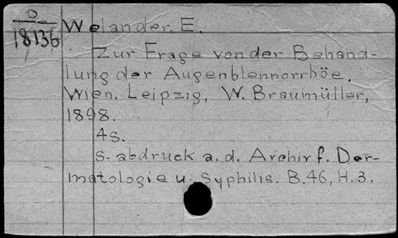 O
18136
Welander. E.
Zur Frage von der Behand-
lung der Augenblennorrhöe.
Wien. Leipzig, W. Braumüller,
1898.
4s.
S. abdruck a. d. Archiv f. Der-
matologie u. Syphilis. B.46, H.3.